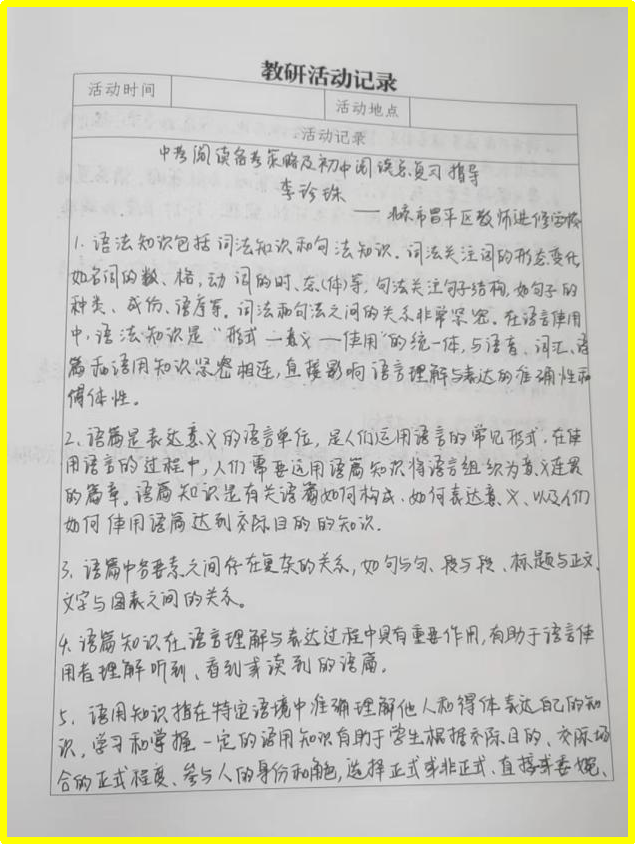 教研活动记录
活动时间
活动地点
活动记录
中考阅读备考策略及初中阅读总复习指导
李珍珠
——北京市昌平区教师进修学校
1. 语法知识包括词法知识和句法知识。词法关注词的形态变化,
如名词的数、格,动词的时、态(体)等,句法关注句子结构,如句子的
种类、成份、语序等。词法和句法之间的关系非常紧密。在语言使用
中,语法知识是“形式—意义—使用”的统一体,与语音、词汇、语
篇和语用知识紧密相连,直接影响语言理解与表达的准确性和
得体性。
2. 语篇是表达意义的语言单位,是人们运用语言的常见形式,在使
用语言的过程中,人们需要运用语篇知识将语言组织为意义连贯
的篇章。语篇知识是有关语篇如何构成、如何表达意义、以及人们
如何使用语篇达到交际目的的知识.
3. 语篇中各要素之间存在复杂的关系,如句与句、段与段、标题与正文、
文字与图表之间的关系。
4. 语篇知识在语言理解与表达过程中具有重要作用,有助于语言使
用者理解听到、看到或读到的语篇,
5. 语用知识指在特定语境中准确理解他人和得体表达自己的知
识,学习和掌握一定的语用知识有助于学生根据交际目的、交际场
合的正式程度、参与人的身份和角色,选择正式或非正式、直接或委婉、